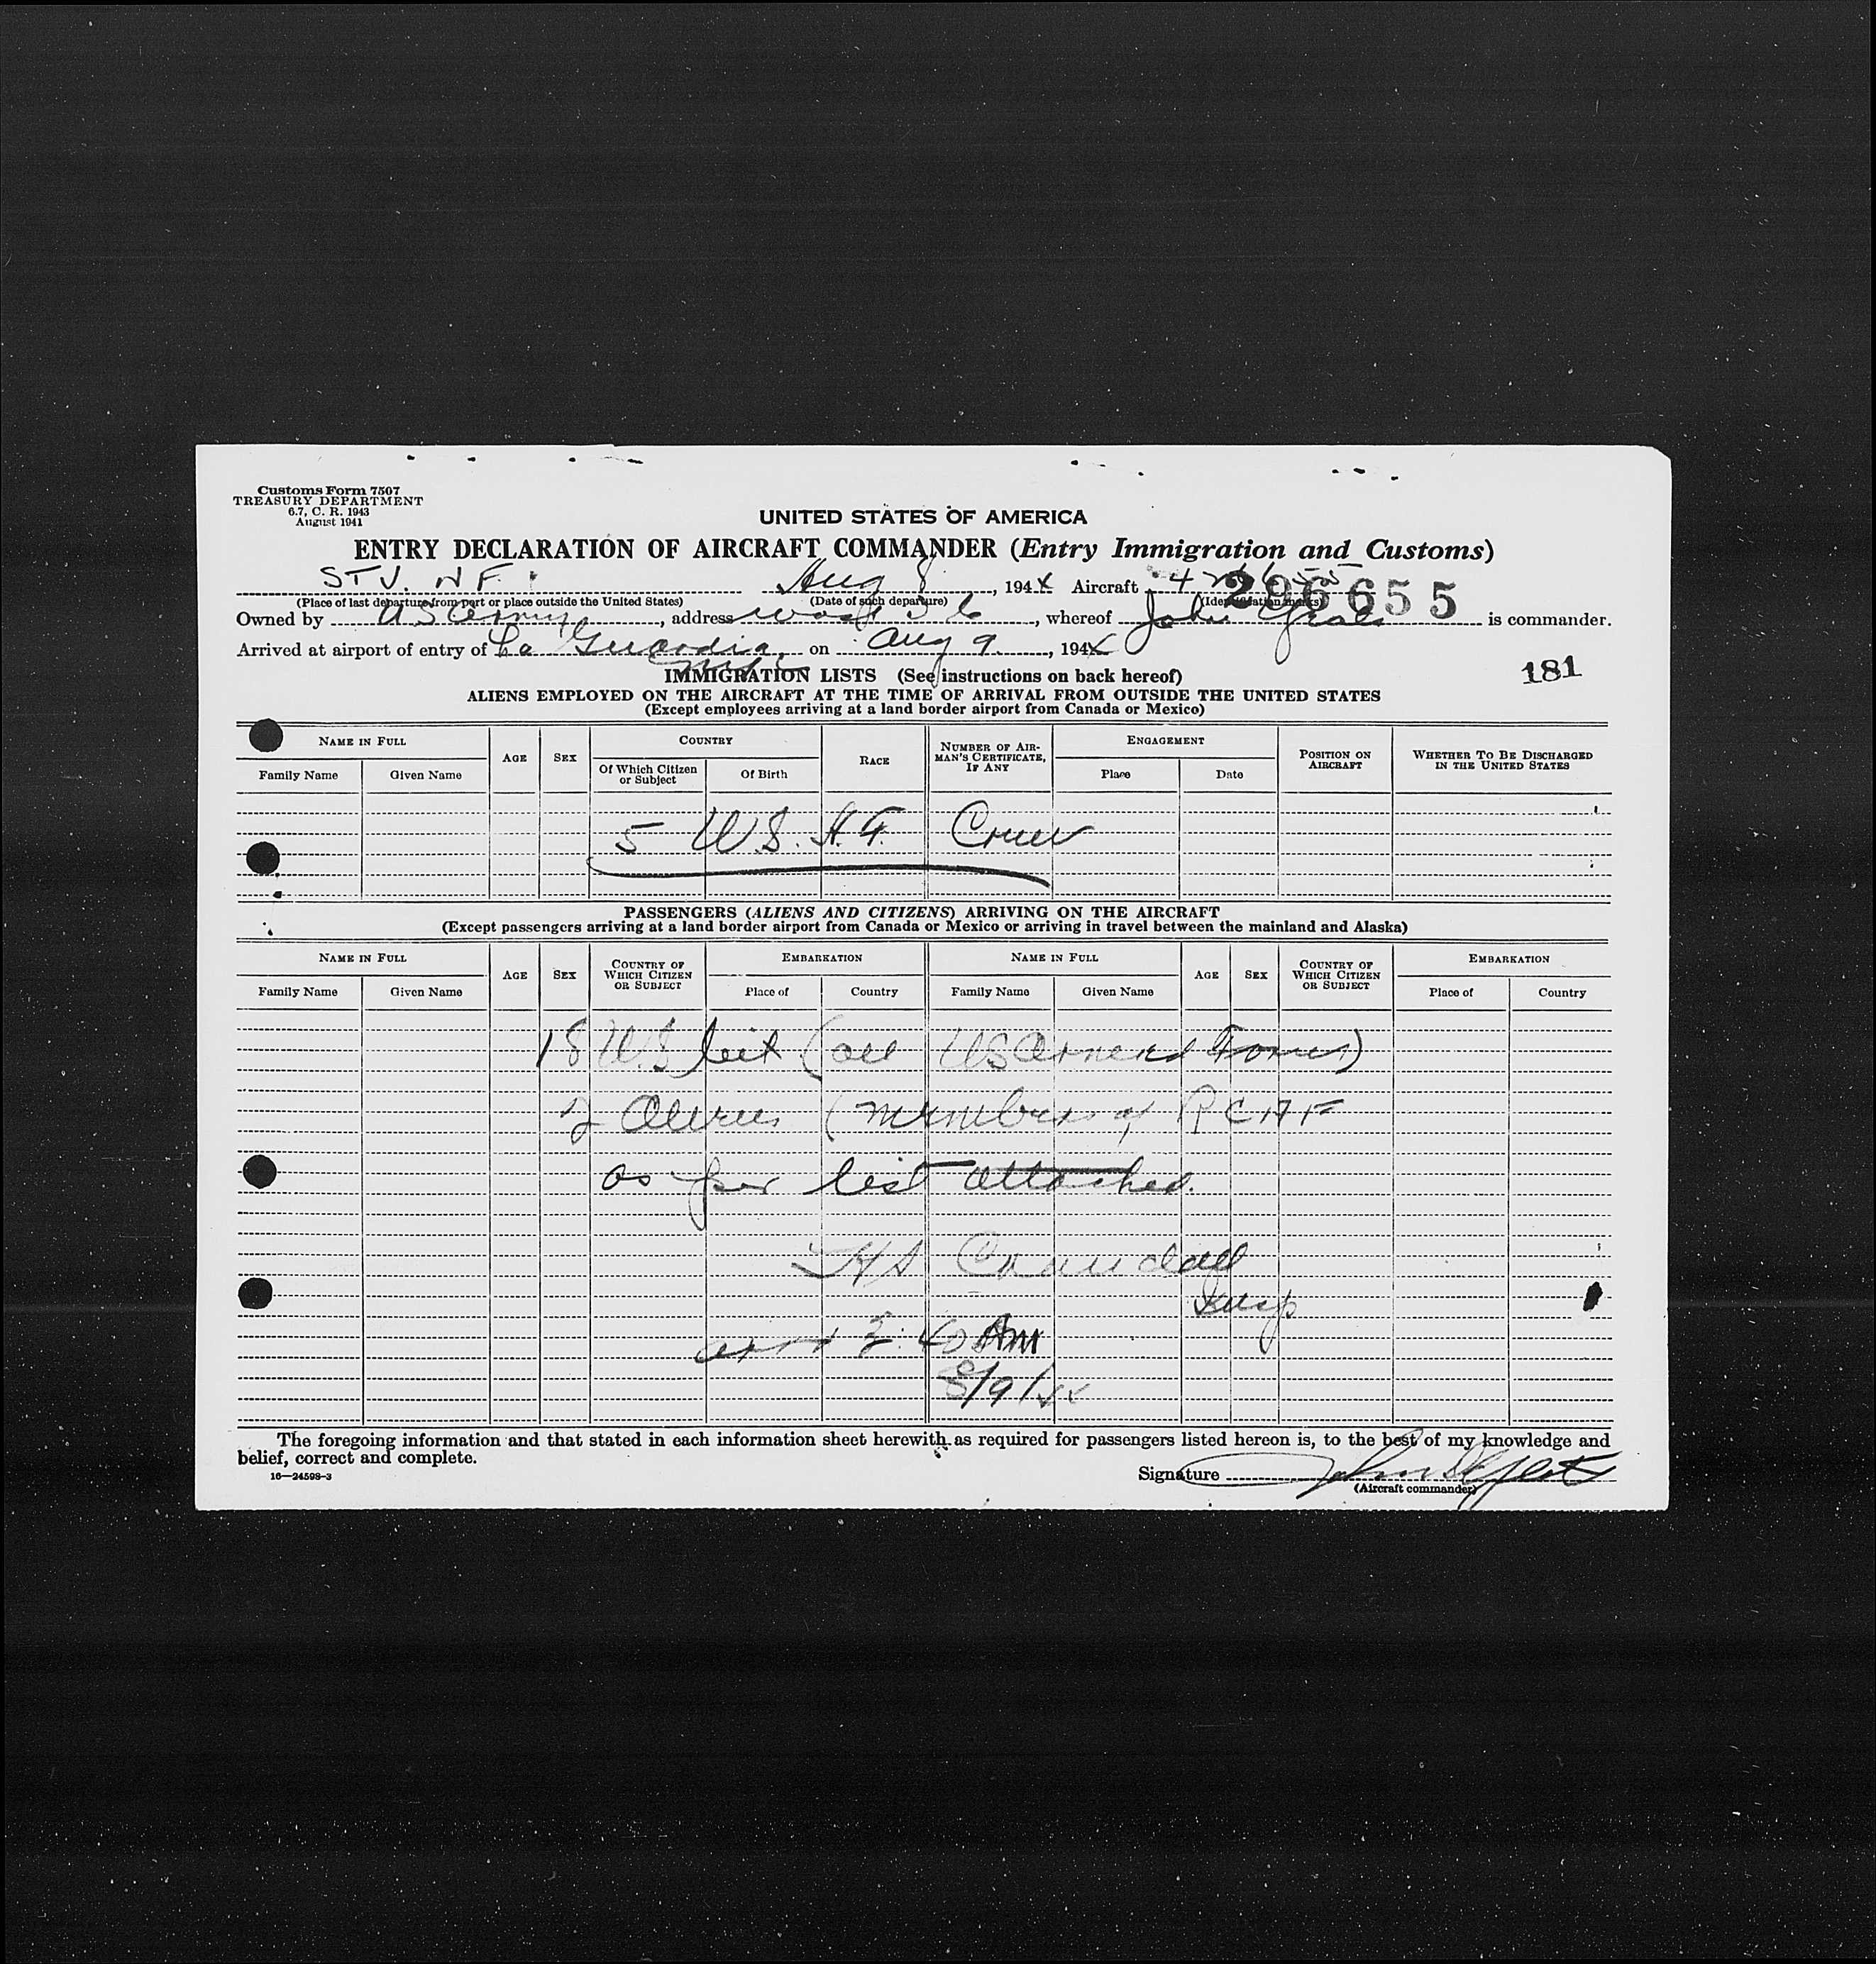 Customs Form 7507
TREASURY DEPARTMENT
6.7, C. R. 1943
August 1941
UNITED STATES OF AMERICA
ENTRY DECLARATION OF AIRCRAFT COMMANDER (Entry Immigration and Customs)
ST J. N F. Aug 8, 194 Aircraft
296655
(Place of last departure from port or place outside the United States) (Date of such departure) (Identification marks)
Owned by US Army, address Wash, whereof John is commander.
Arrived at airport of entry of La Guardia, on Aug 9, 194
181
IMMIGRATION LISTS (See instructions on back hereof)
ALIENS EMPLOYED ON THE AIRCRAFT AT THE TIME OF ARRIVAL FROM OUTSIDE THE UNITED STATES
(Except employees arriving at a land border airport from Canada or Mexico)
NAME IN FULL AGE SEX COUNTRY RACE NUMBER OF AIRMAN'S CERTIFICATE, IF ANY ENGAGEMENT POSITION ON AIRCRAFT WHETHER TO BE DISCHARGED IN THE UNITED STATES
Family Name Given Name Of Which Citizen or Subject Of Birth Place Date
5 U.S. A.F. Crew
PASSENGERS (ALIENS AND CITIZENS) ARRIVING ON THE AIRCRAFT
(Except passengers arriving at a land border airport from Canada or Mexico or arriving in travel between the mainland and Alaska)
NAME IN FULL AGE SEX COUNTRY OF WHICH CITIZEN OR SUBJECT EMBARKATION NAME IN FULL AGE SEX COUNTRY OF WHICH CITIZEN OR SUBJECT EMBARKATION
Family Name Given Name Place of Country Family Name Given Name Place of Country
18 U.S cit (all US Armed Forces)
2 Aliens (members of RCAF
as per list attached.
Crandall
Insp
40 AM
8/9/44
The foregoing information and that stated in each information sheet herewith as required for passengers listed hereon is, to the best of my knowledge and
belief, correct and complete.
16—24598-3
Signature John
(Aircraft commander)